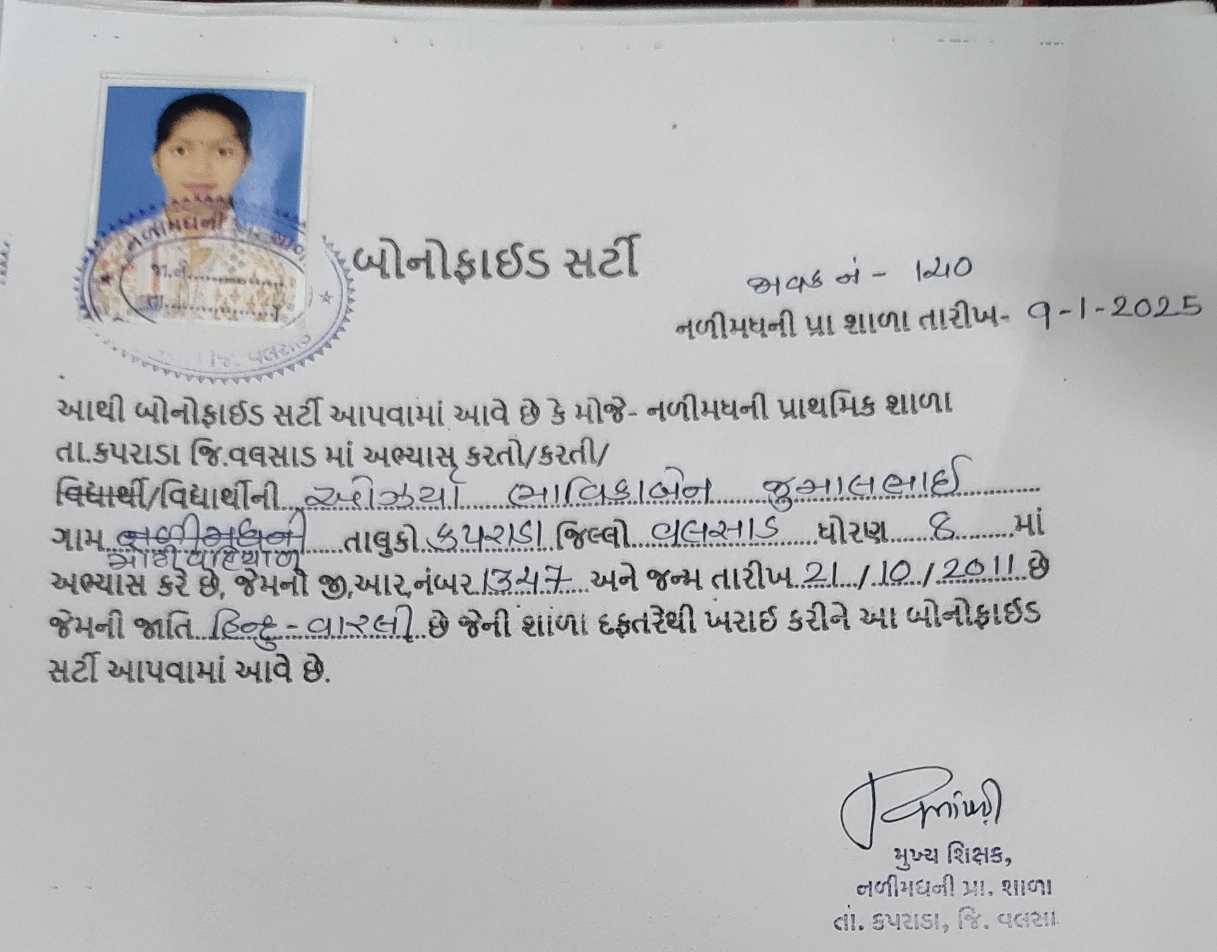 નળીમધની પ્રા. શાળા
જા.નં..................
તા.....................
જિ. વલસાડ
બોનોફાઈડ સર્ટી
જાવક નં - ૧૨૦
નળીમધની પ્રા શાળા તારીખ- ૧-1-2025
આથી બોનોફાઈડ સર્ટી આપવામાં આવે છે કે મોજે- નળીમધની પ્રાથમિક શાળા
તા.કપરાડા જિ.વલસાડ માં અભ્યાસ કરતો/કરતી/
વિદ્યાર્થી/વિદ્યાર્થીની ઓઝર્યા ભાવિકાબેન જુમાલભાઈ
ગામ નળીમધની તાલુકો કપરાડા જિલ્લો વલસાડ ધોરણ ૮ માં
મોટી વહિયાળ
અભ્યાસ કરે છે, જેમનો જી,આર,નંબર 1347 અને જન્મ તારીખ 21/10/2011 છે
જેમની જાતિ હિન્દુ - વારલી છે જેની શાળા દફતરેથી ખરાઈ કરીને આ બોનોફાઈડ
સર્ટી આપવામાં આવે છે.
મુખ્ય શિક્ષક,
નળીમધની પ્રા. શાળા
તાં. કપરાડા, જિ. વલસા